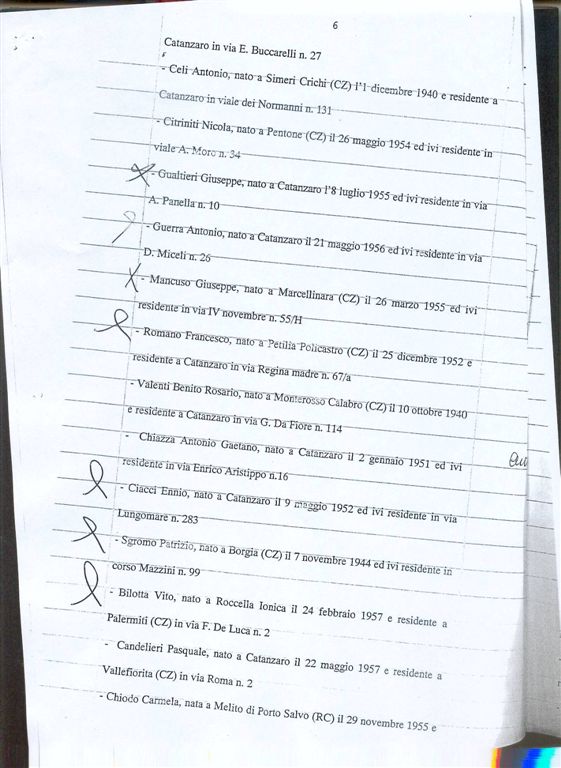 6
Catanzaro in via E. Buccarelli n. 27
- Celi Antonio, nato a Simeri Crichi (CZ) l'1 dicembre 1940 e residente a
Catanzaro in viale dei Normanni n. 131
- Citriniti Nicola, nato a Pentone (CZ) il 26 maggio 1954 ed ivi residente in
viale A. Moro n. 34
- Gualtieri Giuseppe, nato a Catanzaro l'8 luglio 1955 ed ivi residente in via
A. Panella n. 10
- Guerra Antonio, nato a Catanzaro il 21 maggio 1956 ed ivi residente in via
D. Miceli n. 26
- Mancuso Giuseppe, nato a Marcellinara (CZ) il 26 marzo 1955 ed ivi
residente in via IV novembre n. 55/H
- Romano Francesco, nato a Petilia Policastro (CZ) il 25 dicembre 1952 e
residente a Catanzaro in via Regina madre n. 67/a
- Valenti Benito Rosario, nato a Monterosso Calabro (CZ) il 10 ottobre 1940
e residente a Catanzaro in via G. Da Fiore n. 114
- Chiazza Antonio Gaetano, nato a Catanzaro il 2 gennaio 1951 ed ivi
residente in via Enrico Aristippo n.16
- Ciacci Ennio, nato a Catanzaro il 9 maggio 1952 ed ivi residente in via
Lungomare n. 283
- Sgromo Patrizio, nato a Borgia (CZ) il 7 novembre 1944 ed ivi residente in
corso Mazzini n. 99
- Bilotta Vito, nato a Roccella Ionica il 24 febbraio 1957 e residente a
Palermiti (CZ) in via F. De Luca n. 2
- Candelieri Pasquale, nato a Catanzaro il 22 maggio 1957 e residente a
Vallefiorita (CZ) in via Roma n. 2
- Chiodo Carmela, nata a Melito di Porto Salvo (RC) il 29 novembre 1955 e